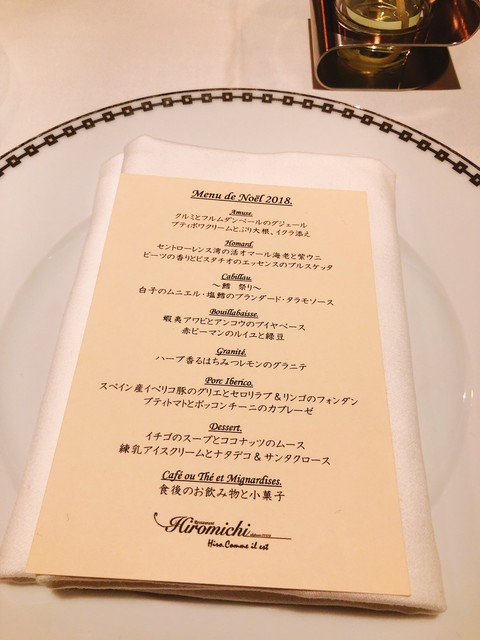 Menu de Noël 2018.
Amuse.
クルミとフルムダンベールのグジェール
プティポワクリームとぶり大根、イクラ添え
Homard.
セントローレンス湾の活オマール海老と紫ウニ
ビーツの香りとピスタチオのエッセンスのブルスケッタ
Cabillau.
～鱈 祭り～
白子のムニエル・塩鱈のブランダード・タラモソース
Bouillabaisse.
蝦夷アワビとアンコウのブイヤベース
赤ピーマンのルイユと緑豆
Granité.
ハーブ香るはちみつレモンのグラニテ
Porc Iberico.
スペイン産イベリコ豚のグリエとセロリラブ&リンゴのフォンダン
プティトマトとボッコンチーニのカプレーゼ
Dessert.
イチゴのスープとココナッツのムース
練乳アイスクリームとナタデココ&サンタクロース
Café ou Thé et Mignardises.
食後のお飲み物と小菓子
Restaurant
Hiromichi
Hiro.Comme il est